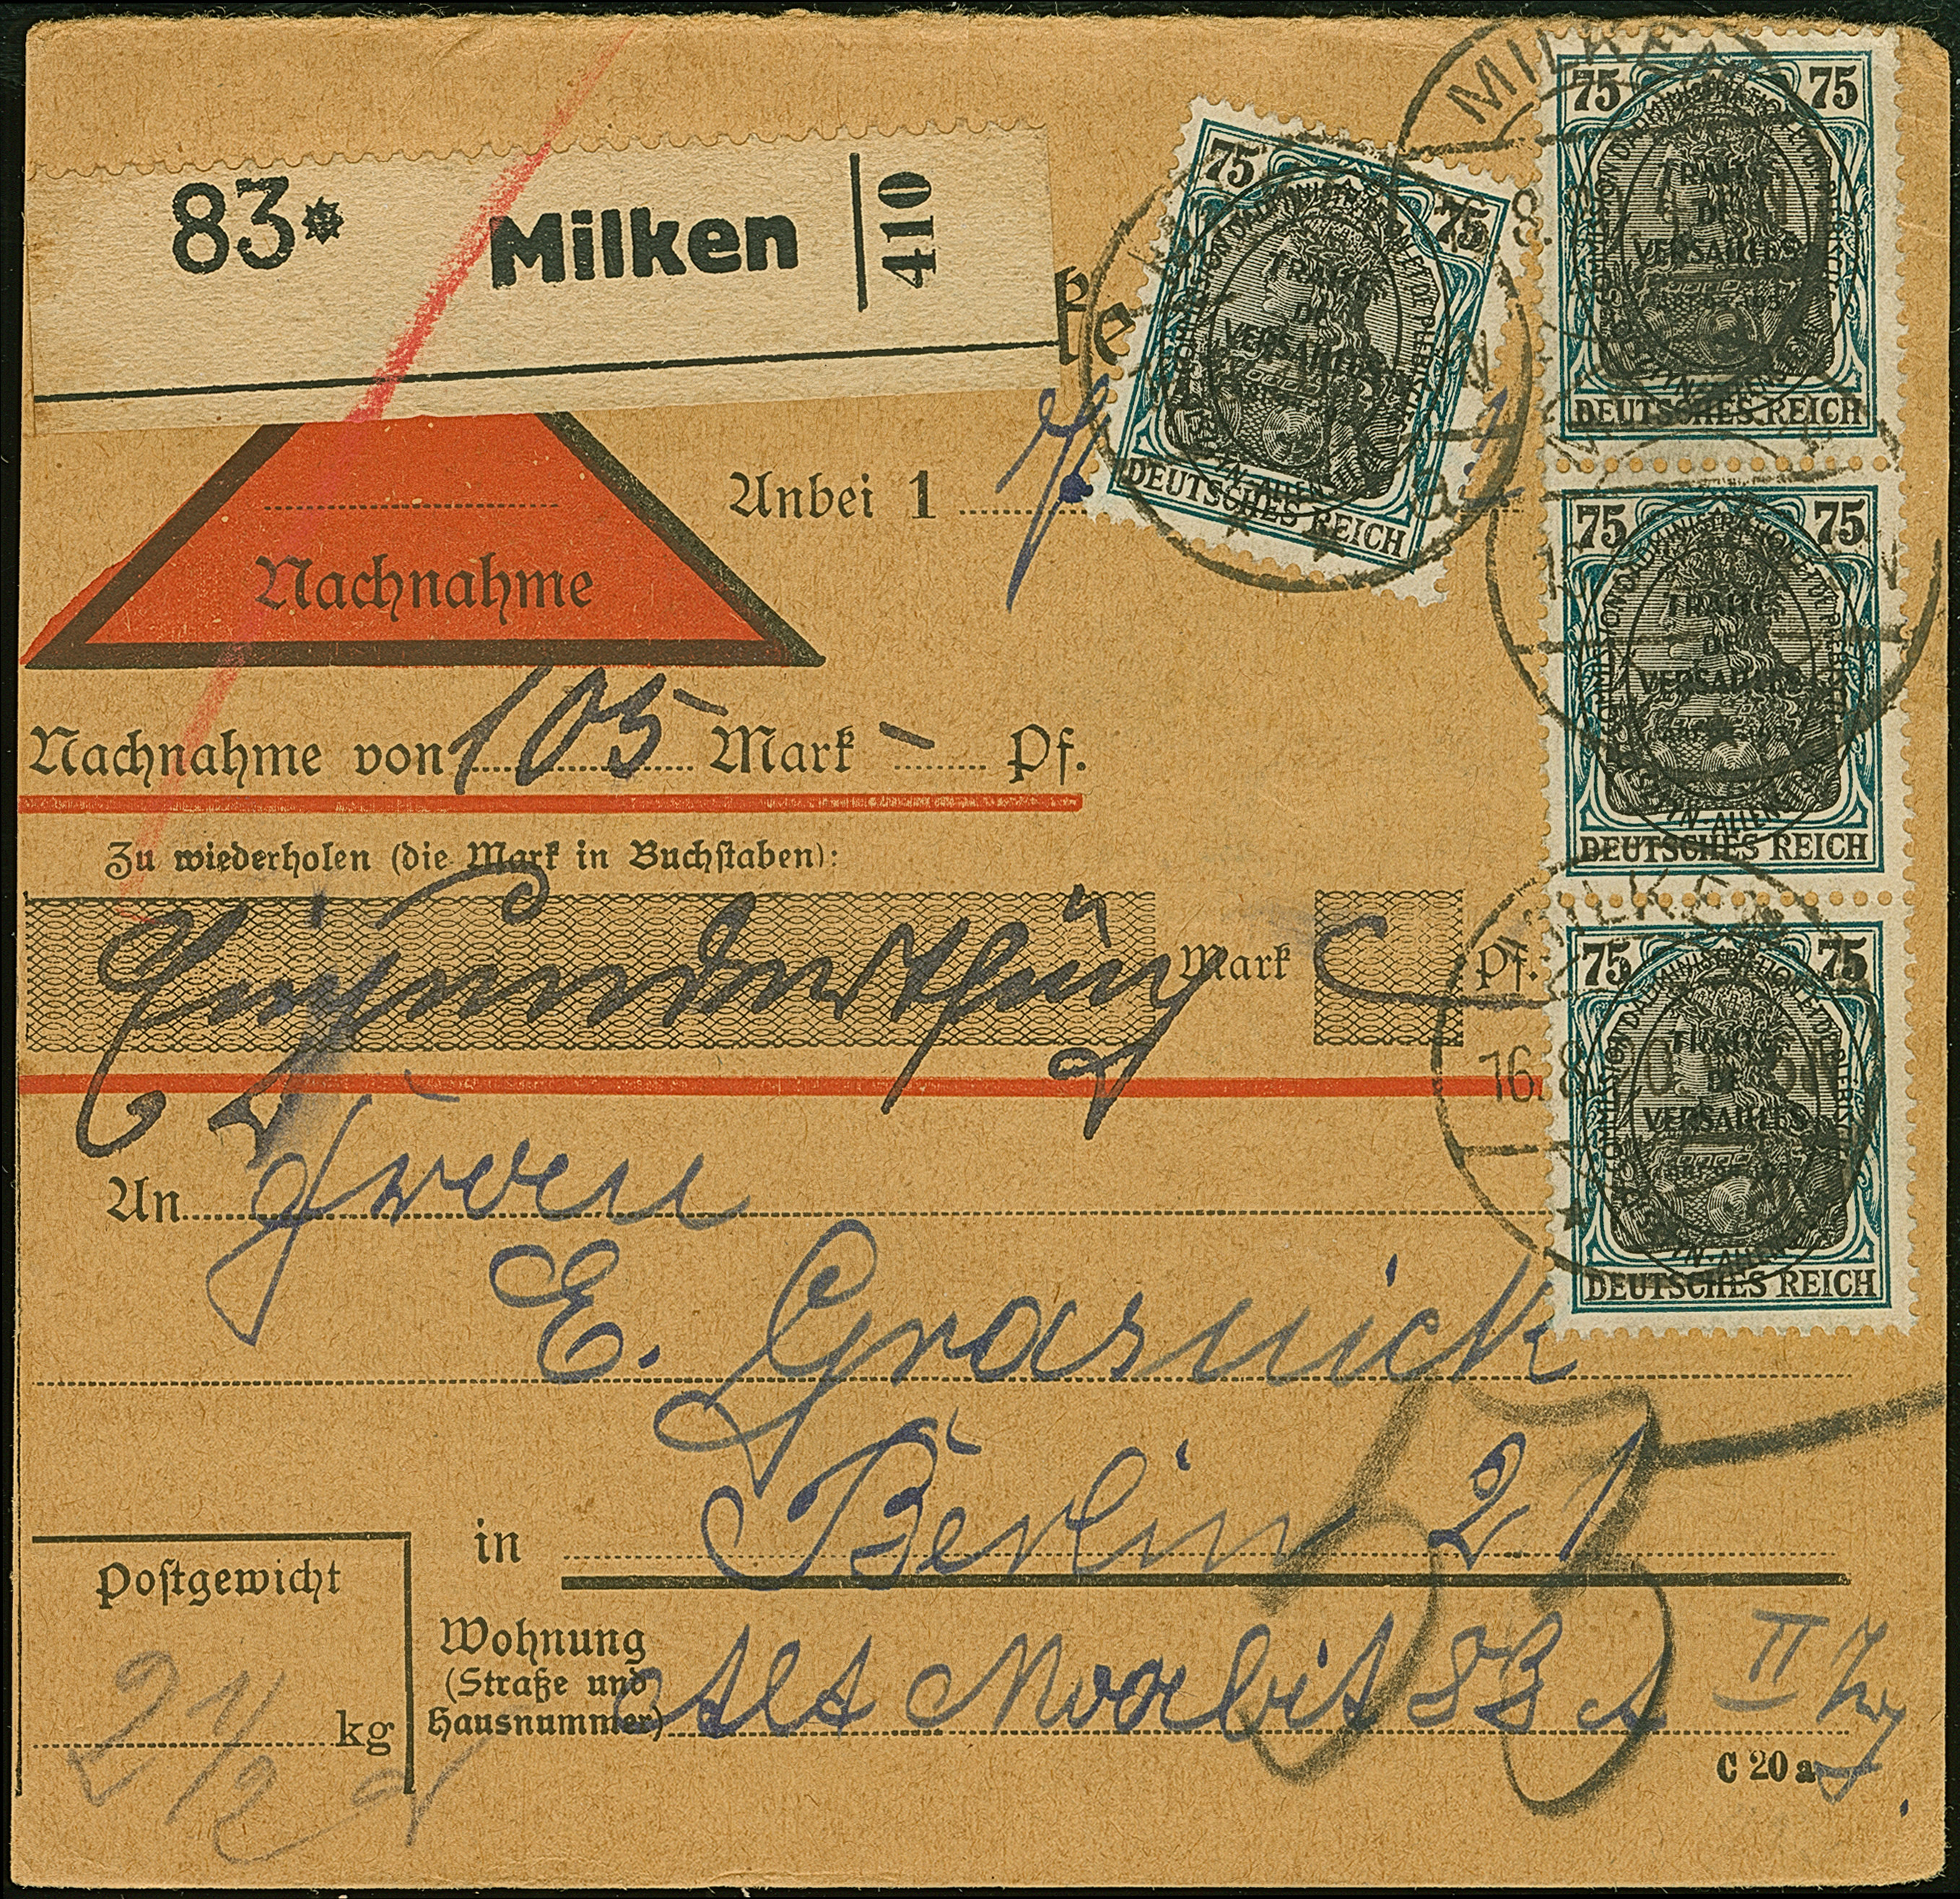 MILKEN
83* Milken 410
75 75
TRAITÉ
DE
VERSAILLES
DEUTSCHES REICH
75 75
COMMISSION D'ADMINISTRATION ET DE PLEBISCITE
TRAITÉ
DE
VERSAILLES
OLSZTYN-ALLENSTEIN
DEUTSCHES REICH
Anbei 1
75 75
TRAITÉ
DE
VERSAILLES
DEUTSCHES REICH
Nachnahme
Nachnahme von 105 Mark – Pf.
Zu wiederholen (die Mark in Buchstaben):
Einhundertfünf Mark Pf.
MILKEN
16.8.
75 75
TRAITÉ
DE
VERSAILLES
DEUTSCHES REICH
An Frau
E. Grasnick
in Berlin 21
Postgewicht
2 1/2 kg
Wohnung
(Straße und
Hausnummer)
Alt Moabit 83 II
C 20 a